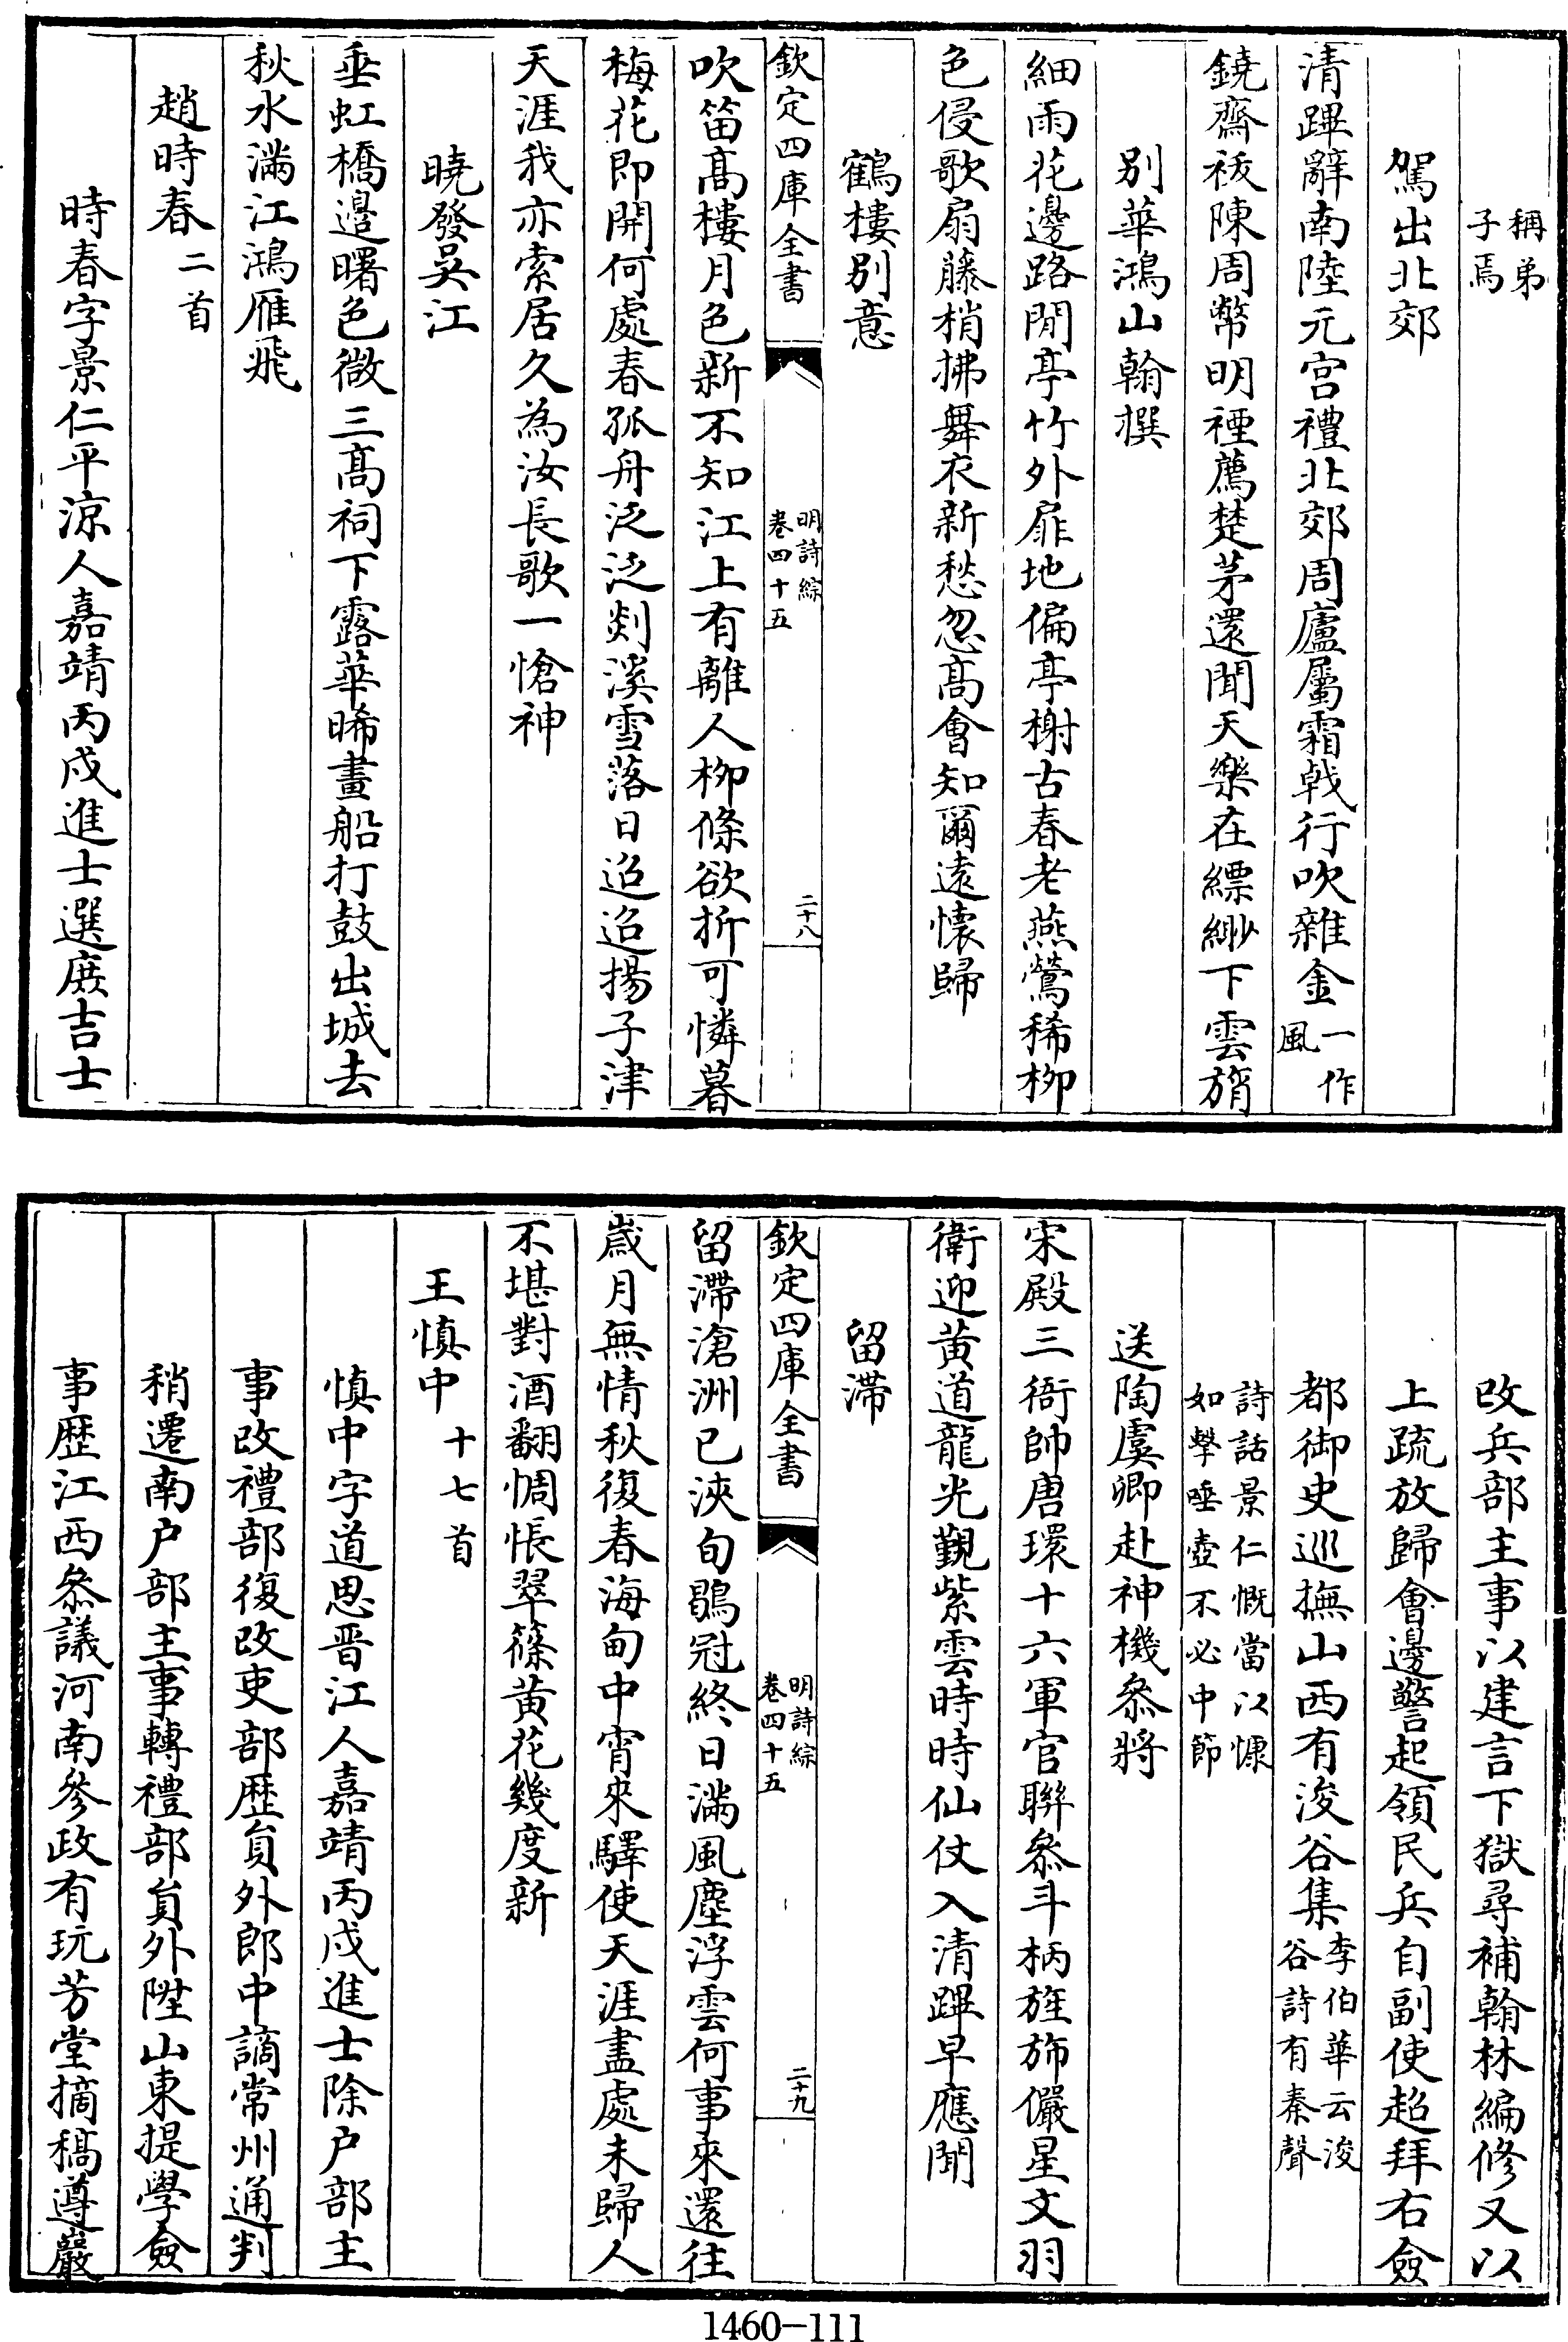 稱弟
子焉
駕出北郊
清蹕辭南陸元宫禮北郊周廬屬霜戟行吹雜金一作風
鐃齋祓陳周幣明禋薦楚茅還聞天樂在縹緲下雲旓
别華鴻山翰撰
細雨花邊路閒亭竹外扉地偏亭榭古春老燕鶯稀栁
色侵歌扇藤梢拂舞衣新愁忽髙會知爾遠懷歸
鶴樓别意
欽定四庫全書
明詩綜
卷四十五
二十八
吹笛髙樓月色新不知江上有離人栁條欲折可憐暮
梅花即開何處春孤舟泛泛剡溪雪落日迢迢揚子津
天涯我亦索居久為汝長歌一愴神
曉發吳江
垂虹橋邉曙色微三髙祠下露華晞畫船打鼓出城去
秋水滿江鴻雁飛
趙時春二首
時春字景仁平凉人嘉靖丙戌進士選庶吉士
改兵部主事以建言下獄尋補翰林編修又以
上疏放歸會邊警起領民兵自副使超拜右僉
都御史巡撫山西有浚谷集李伯華云浚谷詩有秦聲
詩話景仁慨當以慷
如擊唾壺不必中節
送陶虞卿赴神機叅將
宋殿三衙帥唐環十六軍官聯叅斗柄旌斾儼星文羽
衛迎黄道龍光覲紫雲時時仙仗入清蹕早應聞
留滯
欽定四庫全書
明詩綜
卷四十五
二十九
留滯滄洲已浹旬鶡冠終日滿風塵浮雲何事來還往
嵗月無情秋復春海甸中宵來驛使天涯盡處未歸人
不堪對酒翻惆悵翠篠黄花幾度新
王慎中十七首
慎中字道思晋江人嘉靖丙戌進士除户部主
事改禮部復改吏部歴員外郎中謫常州通判
稍遷南户部主事轉禮部員外陞山東提學僉
事歴江西叅議河南參政有玩芳堂摘稿遵巖
1460-111